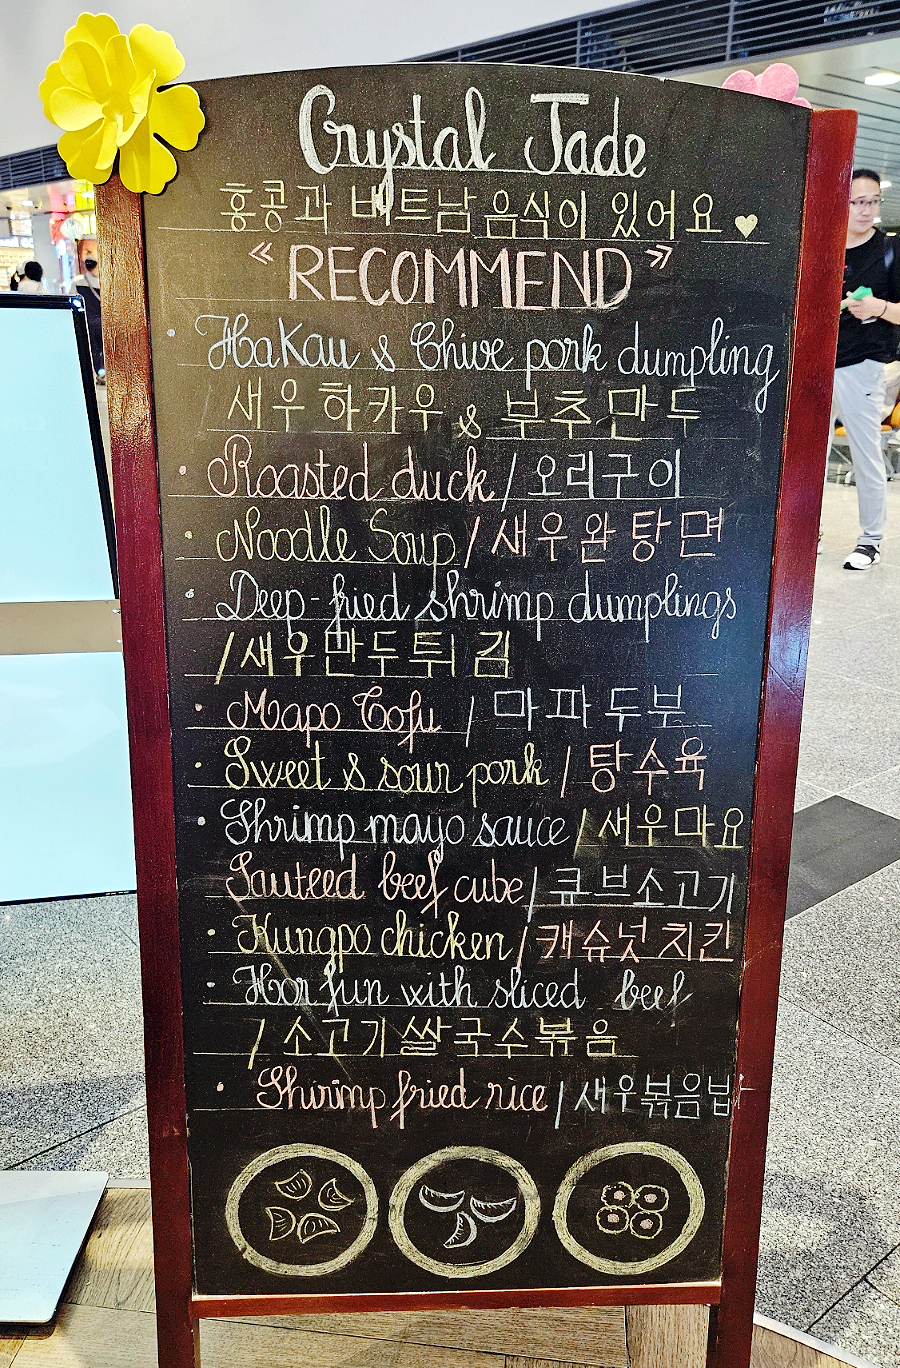 Crystal Jade
홍콩과 베트남 음식이 있어요 ♥
“RECOMMEND”
• HaKau & Chive pork dumpling
새우 하카우 & 부추 만두
• Roasted duck / 오리구이
• Noodle Soup / 새우완탕면
• Deep-fried shrimp dumplings
/ 새우만두튀김
• Mapo Tofu / 마파두부
• Sweet & sour pork / 탕수육
• Shrimp mayo sauce / 새우마요
Sauteed beef cube / 큐브소고기
• Kungpo chicken / 캐슈넛 치킨
• Hor fun with sliced beef
/ 소고기쌀국수볶음
• Shrimp fried rice / 새우볶음밥